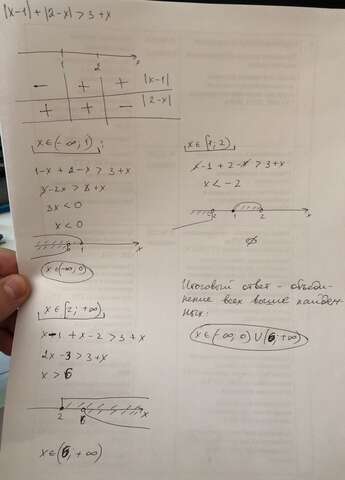 |x-1| + |2-x| > 3 + x
1 2 x
- + + |x-1|
+ + - |2-x|
x ∈ (-∞; 1) :
1-x + 2-x > 3+x
3-2x > 3+x
3x < 0
x < 0
0 1 x
x ∈ (-∞; 0)
x ∈ [1; 2)
x-1 + 2-x > 3+x
x < -2
-2 1 2 x
∅
x ∈ [2; +∞)
x-1 + x-2 > 3+x
2x-3 > 3+x
x > 6
2 6 x
x ∈ (6; +∞)
Итоговый ответ - объеди-
нение всех выше найден-
ных:
x ∈ (-∞; 0) U (6; +∞)